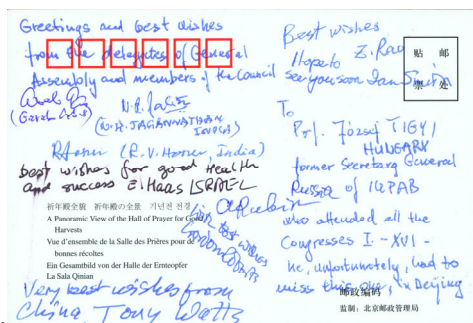 Greetings and best wishes
from the delegates of General
Assembly and members of the Council
(N.R. JAGANNATHAN
INDIA)
(R.V. Hosur, India)
best wishes for good health
and success E. Haas ISRAEL
祈年殿全貌 祈年殿の全景 기년전 전경
A Panoramic View of the Hall of Prayer for Good
Harvests
Vue d'ensemble de la Salle des Prières pour de
bonnes récoltes
Ein Gesamtbild von der Halle der Ernteopfer
La Sala Qinian
Very best wishes from
China Tony Watts
best wishes
Best wishes
Z. Rao
Hope to
see you soon Ian Smith
贴 邮
票 处
To
Prof. József TIGYI
HUNGARY
former Secretary General
of IUPAB
who attended all the
Congresses I. - XVI -
he, unfortunately, had to
miss this one, in Beijing
邮政编码
监制：北京邮政管理局